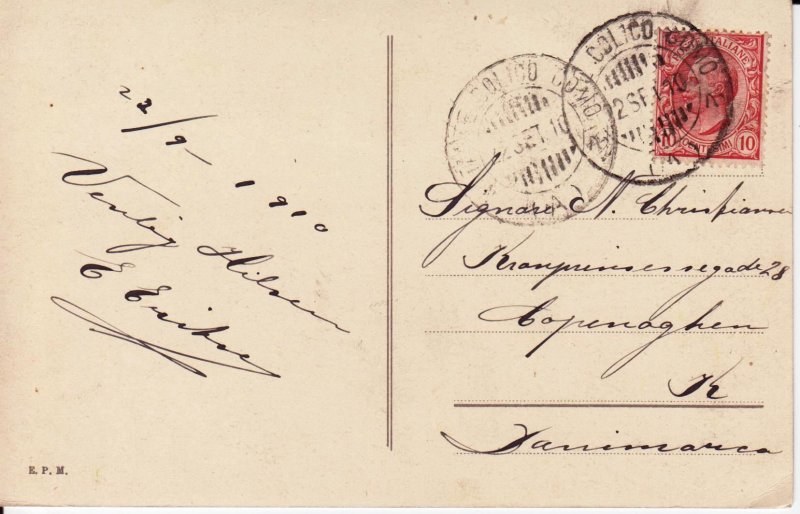 22/9 - 1910
Venlig Hilsen
E Eriksen
E. P. M.
COLICO COMO
2 SET 10
COLICO COMO
2 SET 10
ITALIANE
10 CENTESIMI 10
Signore N. Christiansen
Kronprinsessegade 28
Copenaghen
K
Danimarca